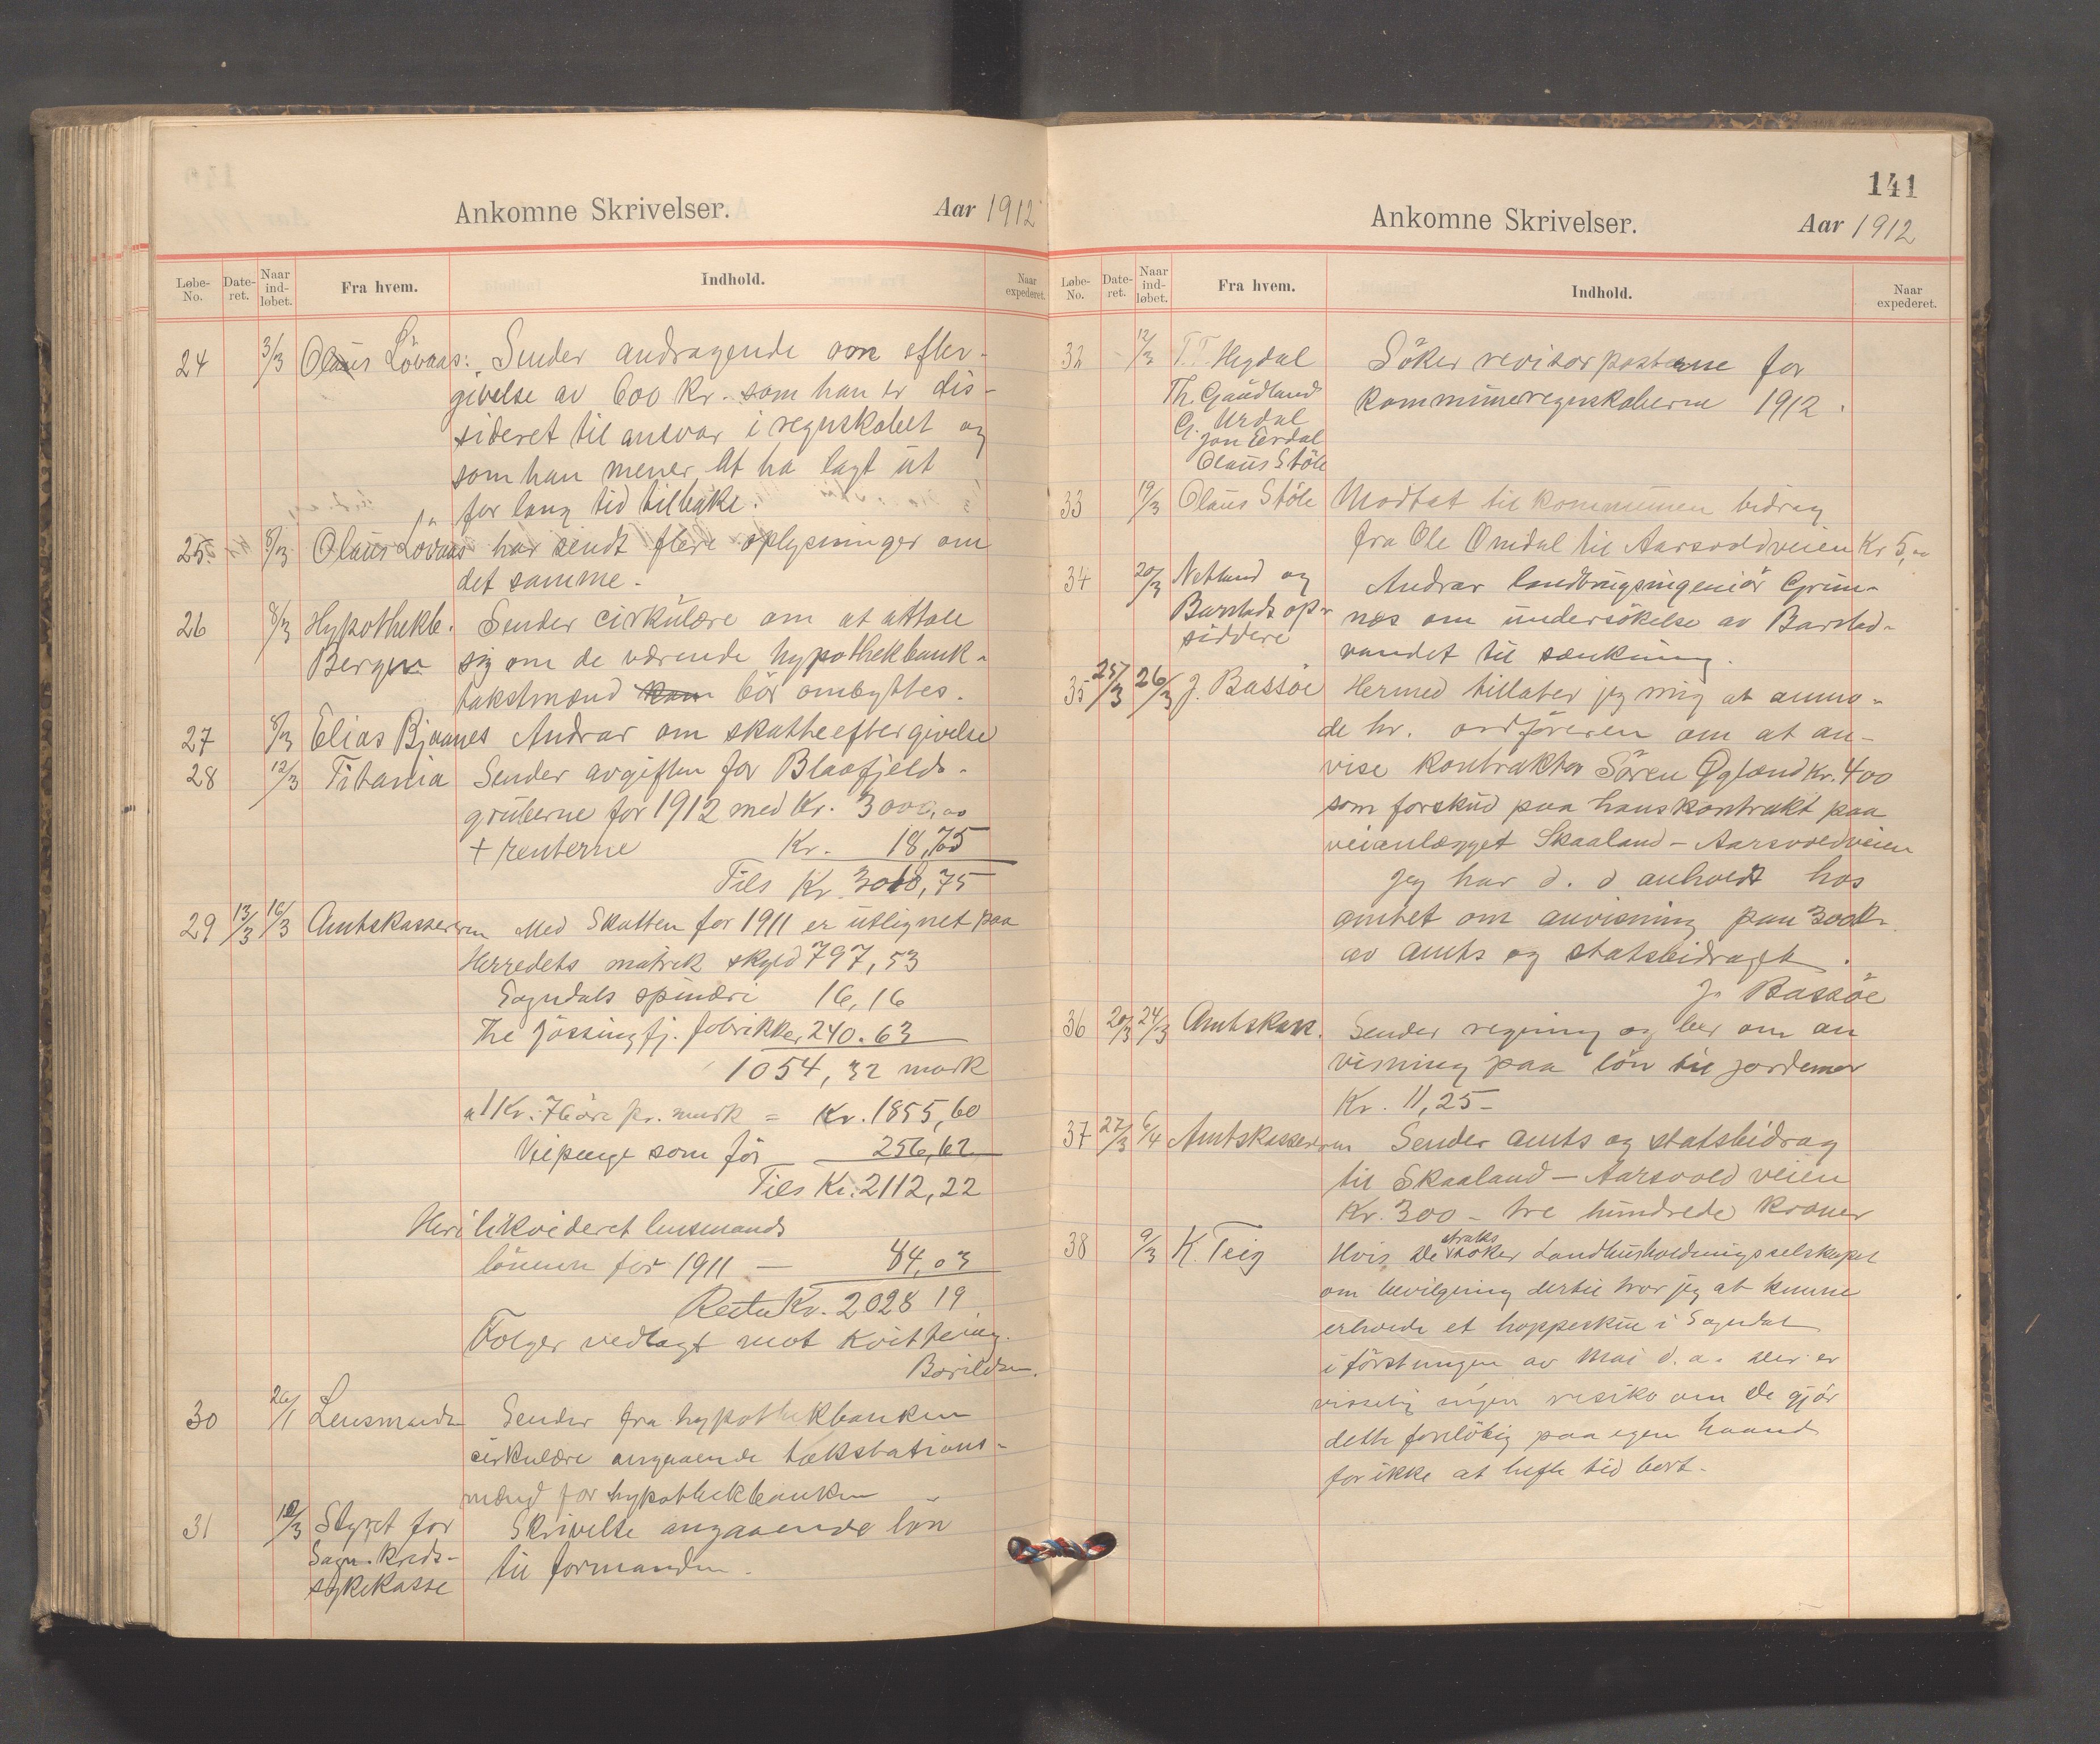 Ankomne Skrivelser. Aar 1912
Løbe-No. Date-ret. Naar ind-løbet. Fra hvem. Indhold. Naar expederet.
24 3/3 Olaus Lövaas: Sender andragende om efter-
givelse av 600 kr. som han er dis-
sideret til ansvar i regnskabet og
som han mener at ha lagt ut
for lang tid tilbake.
25. 8/3 Olaus Lovaas har sendt flere oplysninger om
det samme.
26 8/3 Hypothekb. Sender cirkulære om at uttale
Bergen sig om de værende hypothekbank-
takstmænd kan bör ombyttes.
27 8/3 Elias Bjaanes Andrar om skatteeftergivelse
28 12/3 Titania Sender avgiften for Blaafjelds-
gruberne for 1912 med Kr. 3000,00
+ renterne Kr. 18,75
Tils Kr. 3018,75
29 13/3 16/3 Amtskassereren Med Skatten for 1911 er utlignet paa
Herredets matrik skyld 797,53
Sogndals spinderi 16,16
The Jössingfj. fabrikker 240.63
1054,32 mark
a 1 Kr. 76 öre pr. mark = Kr. 1855,60
Veipenge som för 256,62
Tils Kr. 2112,22
Heri likvideret lensmands
lönnen for 1911 — 84,03
Resten Kr. 2028 19
Folger vedlagt mot kvittering.
30 26/1 Lensmanden Sender fra hypothekbanken
cirkulære angaaende takstations-
mænd for hypothekbanken
31 18/3 Styret for Skrivelse angaaende lön
Sogn. kreds- til formanden.
sykekasse
141
Ankomne Skrivelser. Aar 1912
Løbe-No. Date-ret. Naar ind-løbet. Fra hvem. Indhold. Naar expederet.
32 12/3 T. T. Hegdal Söker revisorposterne for
Th. Gaudland kommuneregnskaberne 1912.
G. Urdal
Jon Eerdal
Olaus Stöle
33 19/3 Olaus Stöle Modtat til kommunen bidrag
fra Ole Omdal til Aarsvoldveien Kr 5,00
34 20/3 Netland og Andrar landbrugsingeniör Grim-
Barstads op- nes om undersökelse av Barstad-
siddere vandet til sænkning.
35 25/3 26/3 J. Bassöe Hermed tillater jeg mig at anmo-
de hr. ordföreren om at an-
vise kontraktor Sören Øgland Kr. 400
som forskud paa hans kontrakt paa
veianlægget Skaaland - Aarsvoldveien
Jeg har d. d anholdt hos
amtet om anvisning paa 300 kr.
av amts og statsbidraget.
J. Bassöe
36 20/3 24/3 Amtskass. Sender regning og ber om an
visning paa lön til jordemor
Kr. 11,25-
37 27/3 6/4 Amtskassereren Sender amts og statsbidrag
til Skaaland - Aarsvold veien
Kr. 300 - tre hundrede kroner
38 9/3 K. Teig Hvis De straks söker Landhusholdningsselskapet
om bevilgning dertil tror jeg at kunne
erholde et hoppeskue i Sogndal
i förstningen av Mai d. a. Der er
visselig ingen resiko om De gjör
dette foreløbig paa egen haand
for ikke at hefte tid bort.